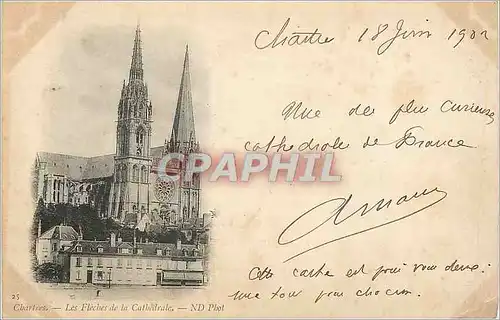 Chartres 18 Juin 1902
Une des plus curieuses
cathédrale de France
CPARAMA
Cette carte est pour vous deux:
une tour pour chacun.
25
Chartres. — Les Flèches de la Cathédrale. — ND Phot